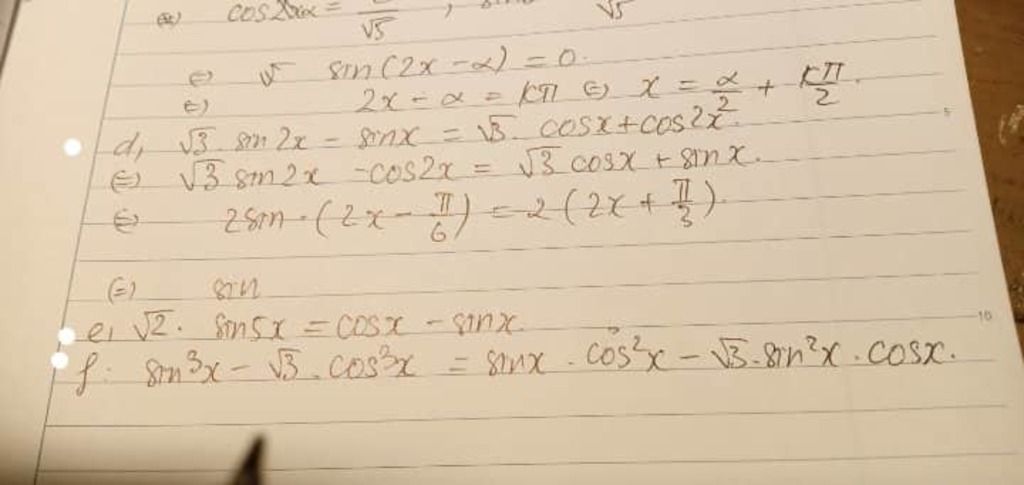 cos2α = /√5 , /√5
⇔ √ sin(2x - α) = 0.
⇔ 2x - α = kπ ⇔ x = α/2 + kπ/2.
d, √3 sin2x - sinx = √3. cosx + cos2x.
⇔ √3 sin2x - cos2x = √3 cosx + sinx.
⇔ 2sin.(2x - π/6) = 2(2x + π/3).
⇔ sin
e, √2. sin5x = cosx - sinx.
f: sin³x - √3.cos³x = sinx.cos²x - √3.sin²x.cosx.